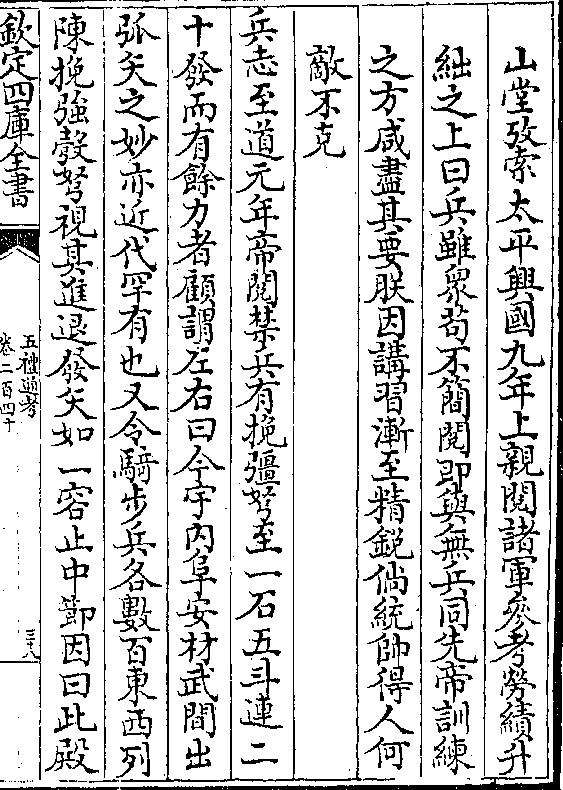 山堂攷索太平興國九年上親閱諸軍參考勞績升
絀之上曰兵雖衆苟不簡閱即與無兵同先帝訓練
之方咸盡其要朕因講習漸至精銳倘統帥得人何
敵不克
兵志至道元年帝閱禁兵有挽彊弩至一石五斗連二
十發而有餘力者顧謂左右曰今宇内阜安材武間出
弧矢之妙亦近代罕有也又令騎步兵各數百東西列
陳挽強彀弩視其進退發矢如一容止中節因曰此殿
欽定四庫全書
五禮通考
卷二百四十
三十八